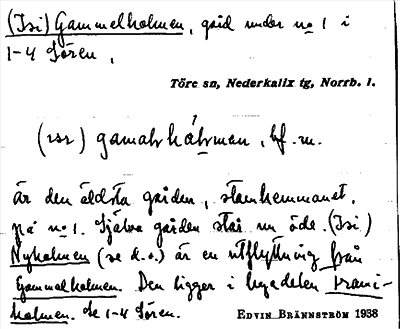 (Isi) Gammelholmen, gård under no 1 i
1-4 Sören,
Töre sn, Nederkalix tg, Norrb. l.
bf. m.
är den äldsta gården, stamhemmanet,
på no 1. Själva gården står nu öde. (Isi)
Nyholmen (se d.o.) är en utflyttning från
Gammelholmen. Den ligger i byadelen Krani-
holmen. Se 1-4 Sören.
EDVIN BRÄNNSTRÖM 1938